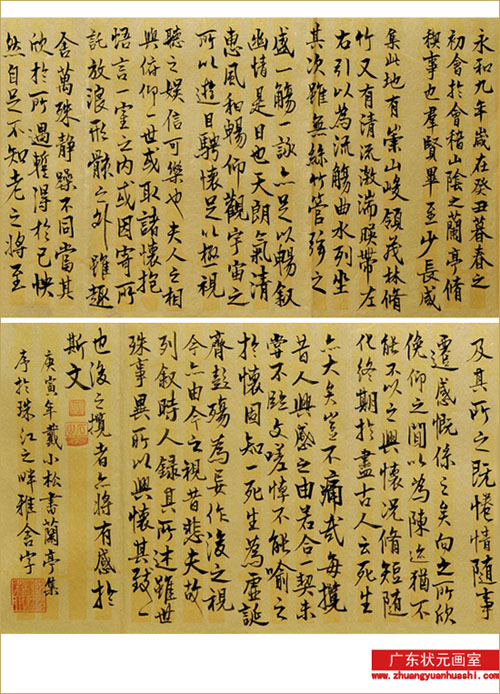 永和九年歲在癸丑暮春之
初會於會稽山陰之蘭亭脩
稧事也羣賢畢至少長咸
集此地有崇山峻領茂林脩
竹又有清流激湍暎帶左
右引以為流觴曲水列坐
其次雖無絲竹管弦之
盛一觴一詠亦足以暢敘
幽情是日也天朗氣清
惠風和暢仰觀宇宙之
所以遊目騁懷足以極視
聽之娛信可樂也夫人之相
與俯仰一世或取諸懷抱
悟言一室之內或因寄所
託放浪形骸之外雖趣
舍萬殊靜躁不同當其
欣於所遇暫得於己怏
然自足不知老之將至
及其所之既惓情隨事
遷感慨係之矣向之所欣
俛仰之閒以為陳迹猶不
能不以之興懷況脩短隨
化終期於盡古人云死生
亦大矣豈不痛哉每攬
昔人興感之由若合一契未
嘗不臨文嗟悼不能喻之
於懷固知一死生為虛誕
齊彭殤為妄作後之視
今亦由今之視昔悲夫故
列敘時人錄其所述雖世
殊事異所以興懷其致一
也後之攬者亦將有感於
斯文
庚寅年戴小松書蘭亭集
序於珠江之畔雅舍字
广东状元画室
www.zhuangyuanhuashi.com